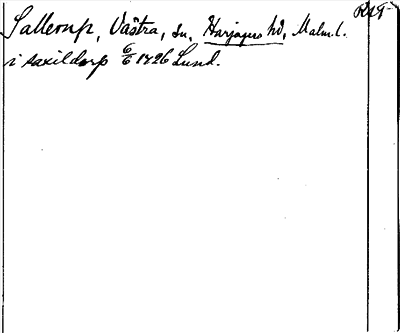 Sallerup, Västra, sn, Harjagers hd, Malm. l.
i saxildorp 6/6 1426 Lund.